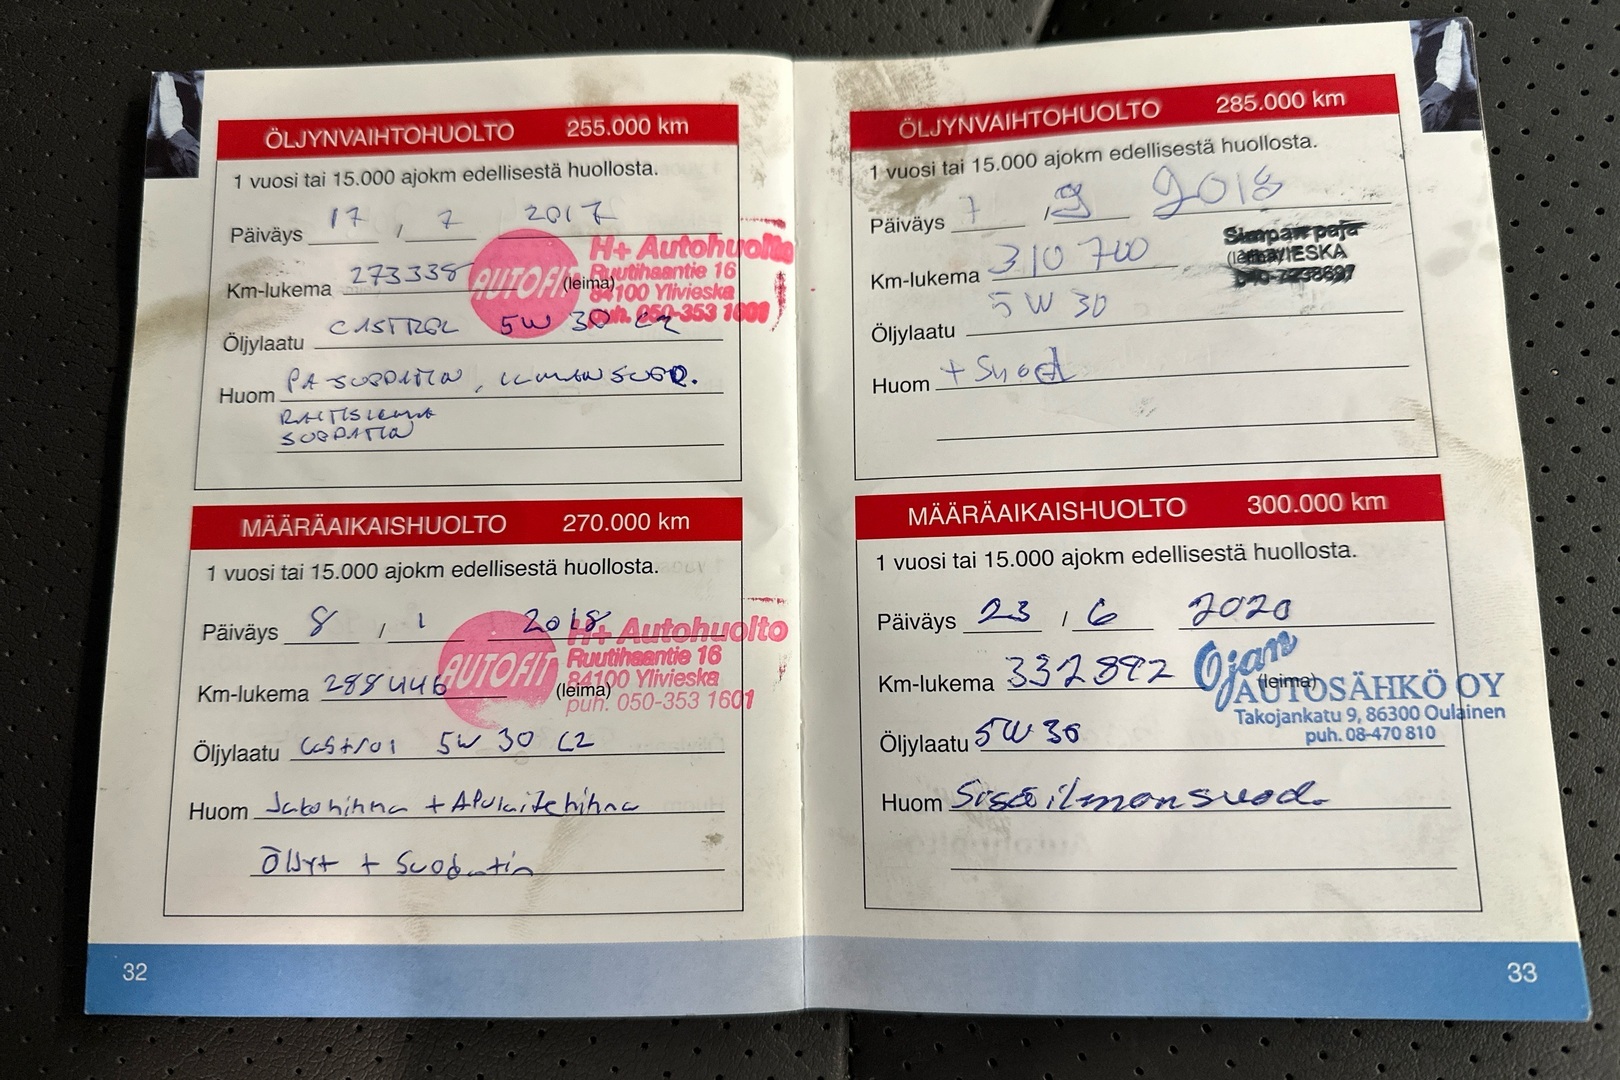 ÖLJYNVAIHTOHUOLTO 255.000 km
1 vuosi tai 15.000 ajokm edellisestä huollosta.
Päiväys 17 / 7 2017
Km-lukema 273338
(leima)
AUTOFIT
H+ Autohuolto
Ruutihaantie 16
84100 Ylivieska
puh. 050-353 1601
Öljylaatu CASTROL 5W 30 C2
Huom PA-SUODATIN, ILMANSUOD.
RAITISILMA
SUODATIN
MÄÄRÄAIKAISHUOLTO 270.000 km
1 vuosi tai 15.000 ajokm edellisestä huollosta.
Päiväys 8 / 1 2018
Km-lukema 288446
(leima)
AUTOFIT
H+ Autohuolto
Ruutihaantie 16
84100 Ylivieska
puh. 050-353 1601
Öljylaatu Castrol 5W 30 C2
Huom Jakohihna + Apulaitehihna
Öljyt + Suodatin
32
ÖLJYNVAIHTOHUOLTO 285.000 km
1 vuosi tai 15.000 ajokm edellisestä huollosta.
Päiväys 7 / 9 2018
Km-lukema 310 700
Simpan paja
(leima)
Öljylaatu 5W 30
Huom + Suod
MÄÄRÄAIKAISHUOLTO 300.000 km
1 vuosi tai 15.000 ajokm edellisestä huollosta.
Päiväys 23 / 6 2020
Km-lukema 332892
(leima)
Ojan
AUTOSÄHKÖ OY
Takojankatu 9, 86300 Oulainen
puh. 08-470 810
Öljylaatu 5W30
Huom Sisäilmansuod.
33